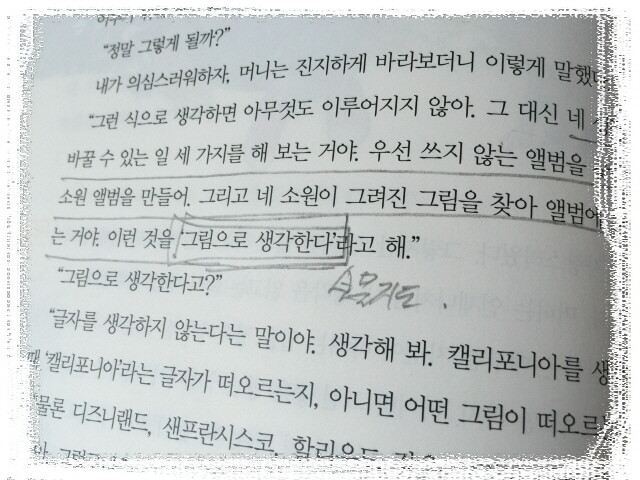 "정말 그렇게 될까?"
내가 의심스러워하자, 머니는 진지하게 바라보더니 이렇게 말했다
"그런 식으로 생각하면 아무것도 이루어지지 않아. 그 대신 네
바꿀 수 있는 일 세 가지를 해 보는 거야. 우선 쓰지 않는 앨범을
소원 앨범을 만들어. 그리고 네 소원이 그려진 그림을 찾아 앨범에
는 거야. 이런 것을 '그림으로 생각한다'라고 해."
"그림으로 생각한다고?"
"글자를 생각하지 않는다는 말이야. 생각해 봐. 캘리포니아를 생
때 '캘리포니아'라는 글자가 떠오르는지, 아니면 어떤 그림이 떠오르
물론 디즈니랜드, 샌프란시스코, 할리우드